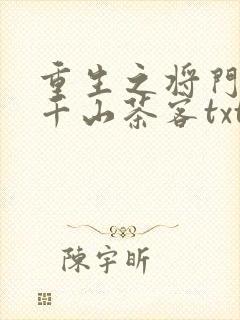 重生之将門
千山茶客txt
陳宇昕